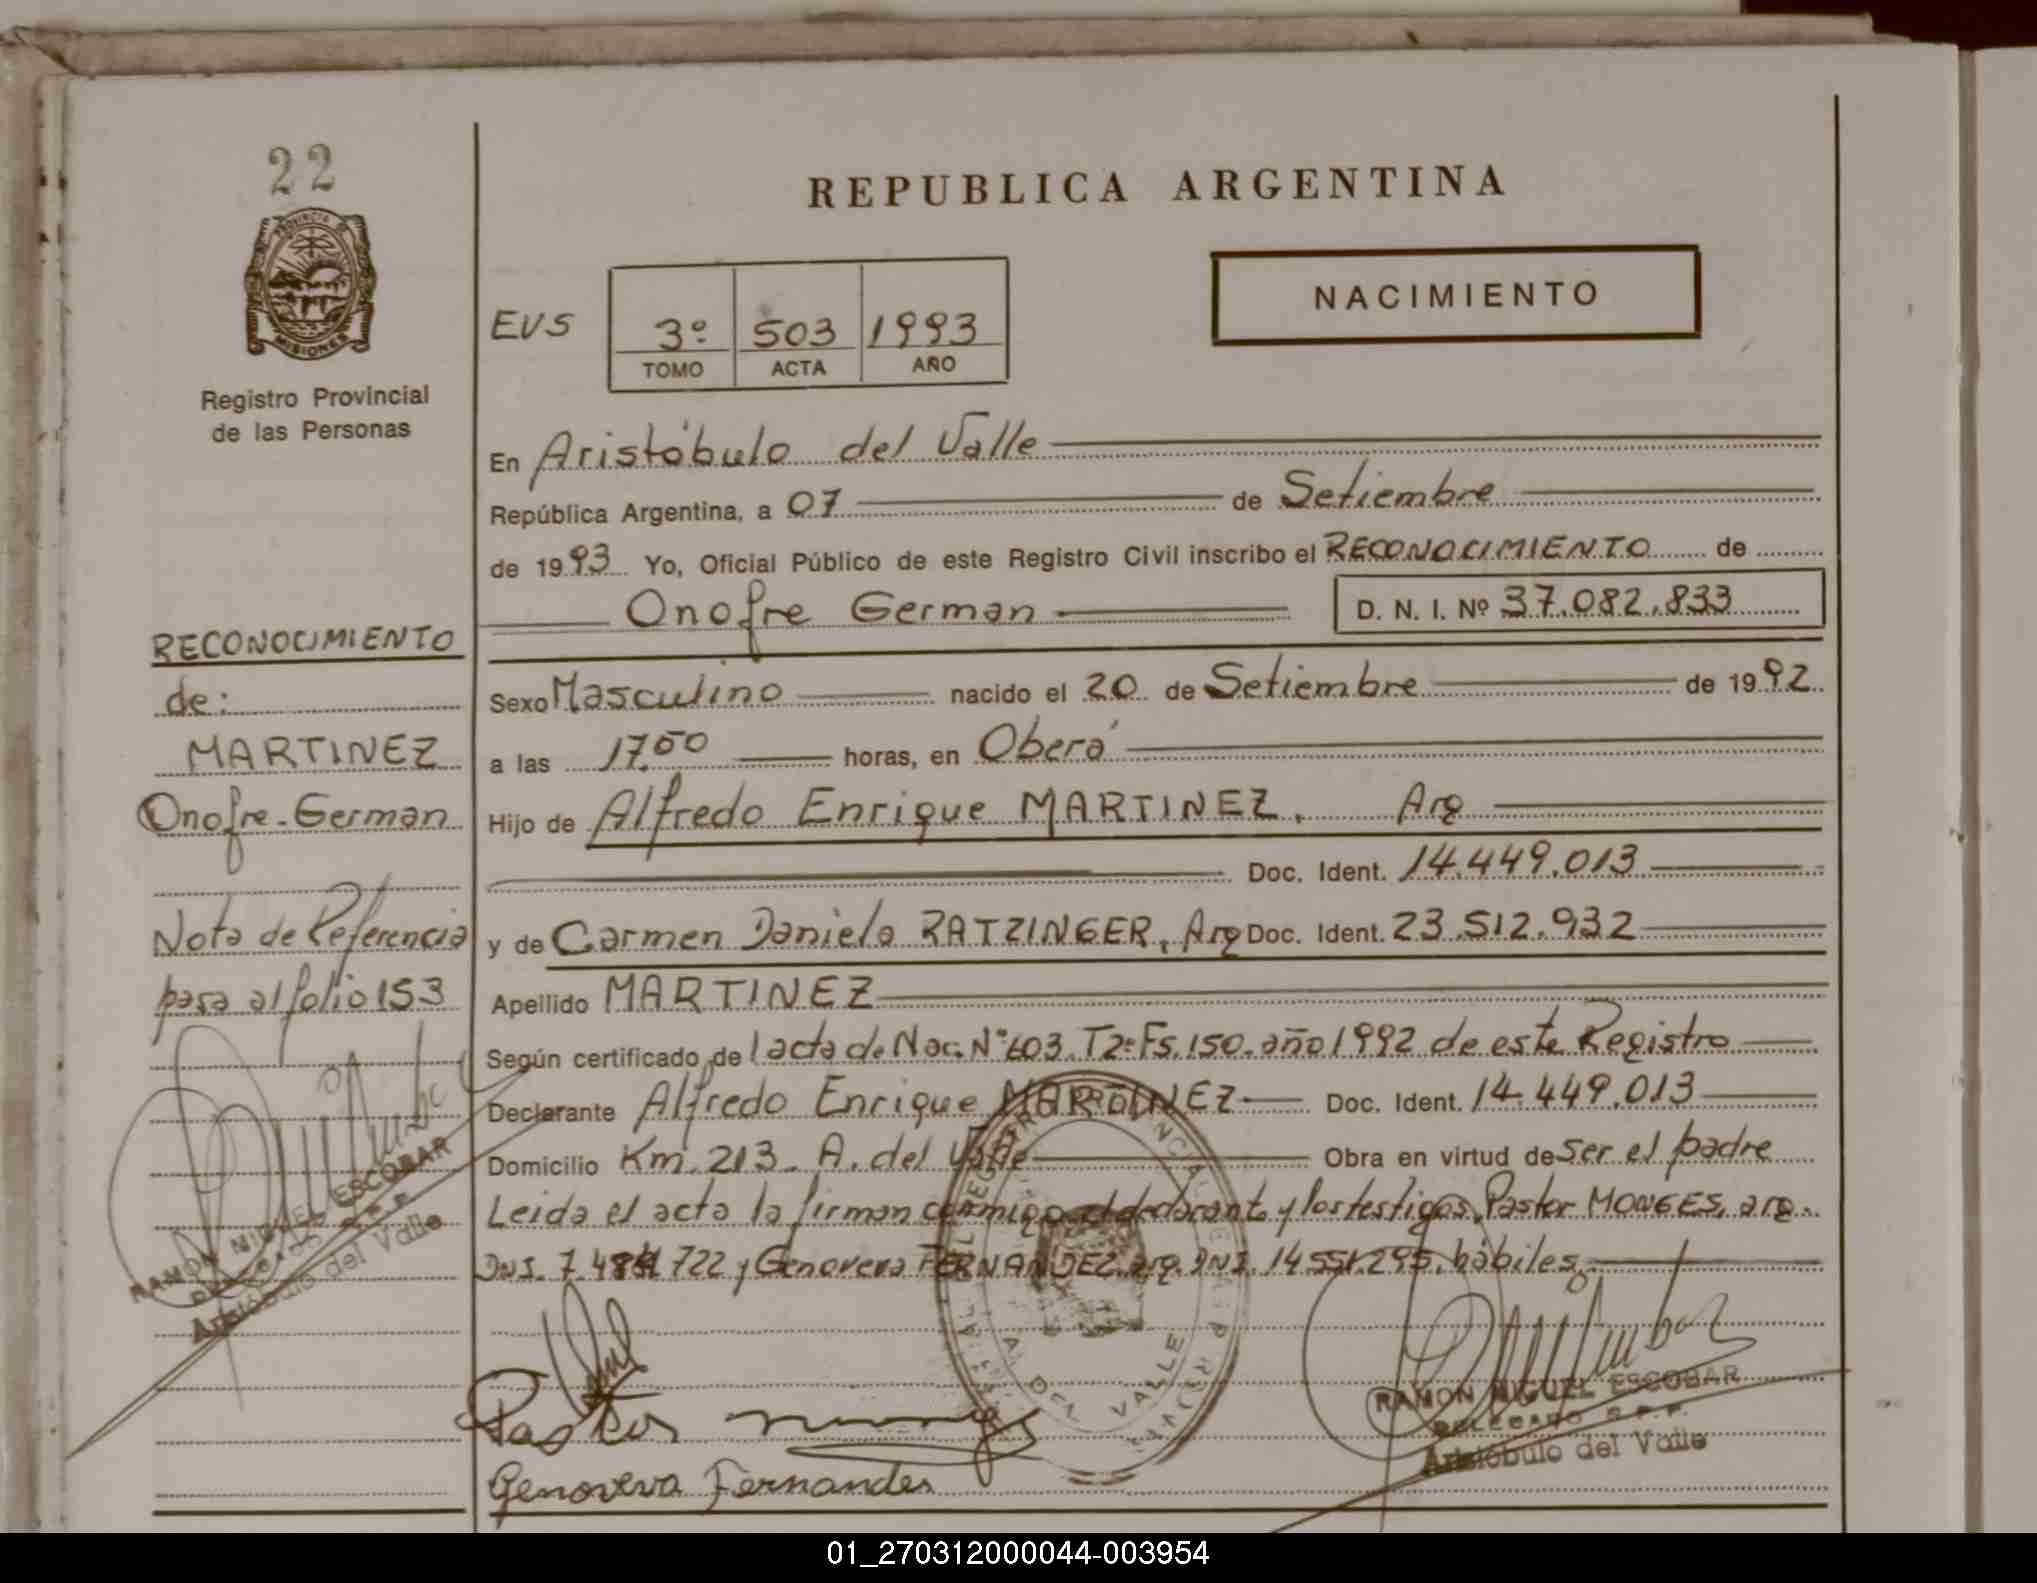 22
PROVINCIA DE
MISIONES
Registro Provincial
de las Personas
REPUBLICA ARGENTINA
NACIMIENTO
EVS
3º 503 1993
TOMO ACTA AÑO
En Aristóbulo del Valle
República Argentina, a 07 de Setiembre
de 1993 Yo, Oficial Público de este Registro Civil inscribo el RECONOCIMIENTO de
Onofre German D. N. I. Nº 37.082.833
Sexo Masculino nacido el 20 de Setiembre de 1992
a las 17.50 horas, en Oberá
Hijo de Alfredo Enrique MARTINEZ, Arg
Doc. Ident. 14.449.013
y de Carmen Daniela RATZINGER, Arg Doc. Ident. 23.512.932
Apellido MARTINEZ
Según certificado de l acta de Nac. Nº 603. T2º Fs. 150. año 1992 de este Registro
Declarante Alfredo Enrique MARTINEZ Doc. Ident. 14.449.013
Domicilio Km. 213. A. del Valle Obra en virtud de ser el padre
Leida el acta la firman conmigo el declarante y los testigos, Pastor MONGES, arg.
DNI. 722 y Genoveva FERNANDEZ, arg. DNI. 14.551.295, hábiles.
RECONOCIMIENTO
de:
MARTINEZ
Onofre-German
Nota de Referencia
pasa al folio 153
RAMON MIGUEL ESCOBAR
DELEGADO R.P.P.
Aristóbulo del Valle
Pastor monges
Genoveva Fernandes
DEL VALLE
RAMON MIGUEL ESCOBAR
DELEGADO R.P.P.
Aristóbulo del Valle
01_270312000044-003954